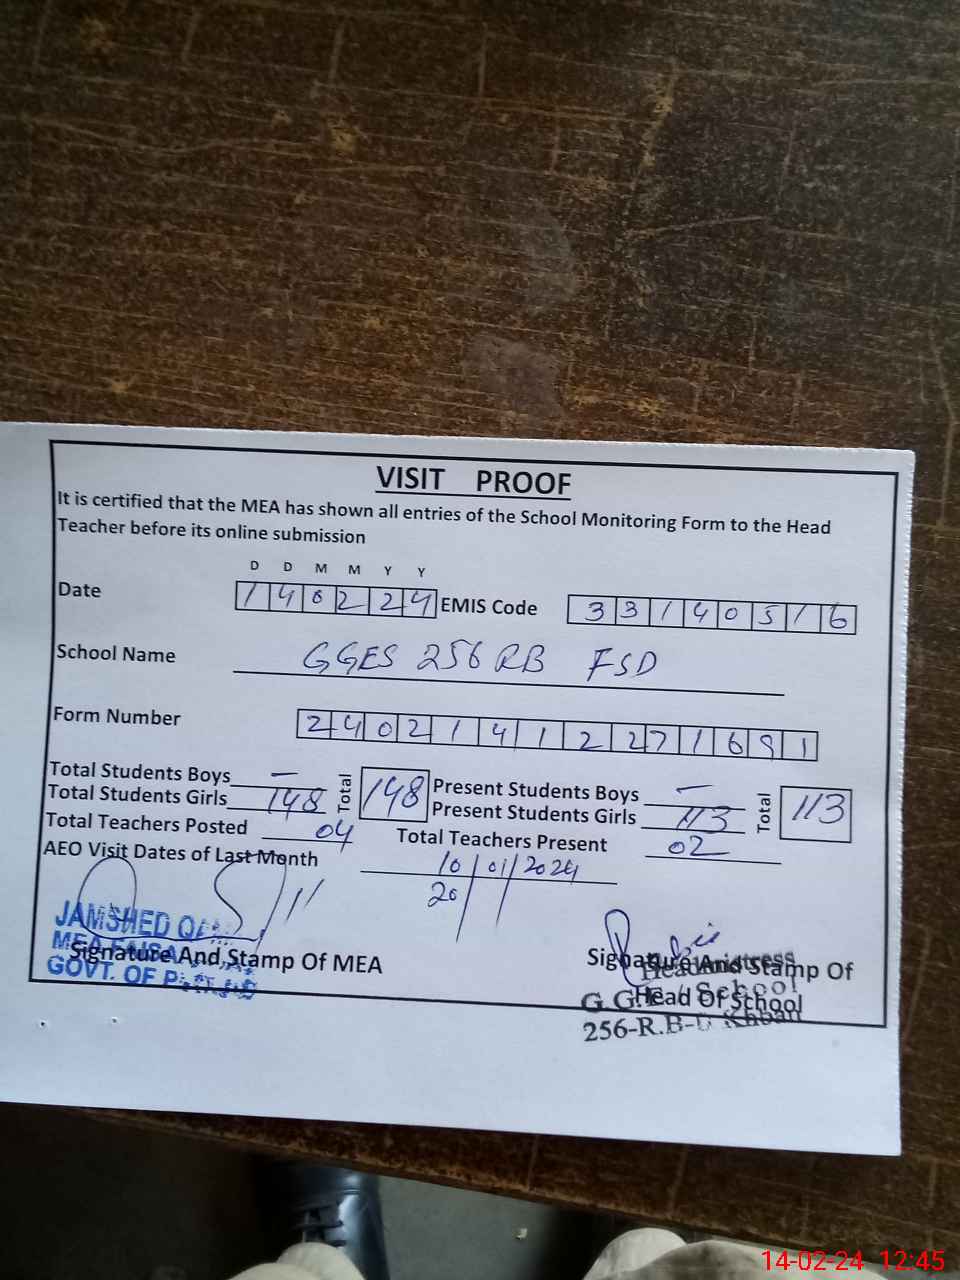 VISIT PROOF
It is certified that the MEA has shown all entries of the School Monitoring Form to the Head
Teacher before its online submission
D D M M Y Y
Date 140224 EMIS Code 33140516
School Name GGES 256 RB FSD
Form Number 24021412271691
Total Students Boys - Total 148 Present Students Boys - Total 113
Total Students Girls 148 Present Students Girls 113
Total Teachers Posted 04 Total Teachers Present 02
AEO Visit Dates of Last Month 10/01/2024
20 / /
JAMSHED
MEA FAISA
GOVT. OF P
Signature And Stamp Of MEA
Signature And Stamp Of
Head Of School
Headmistress
School
256-R.B-
14-02-24 12:45